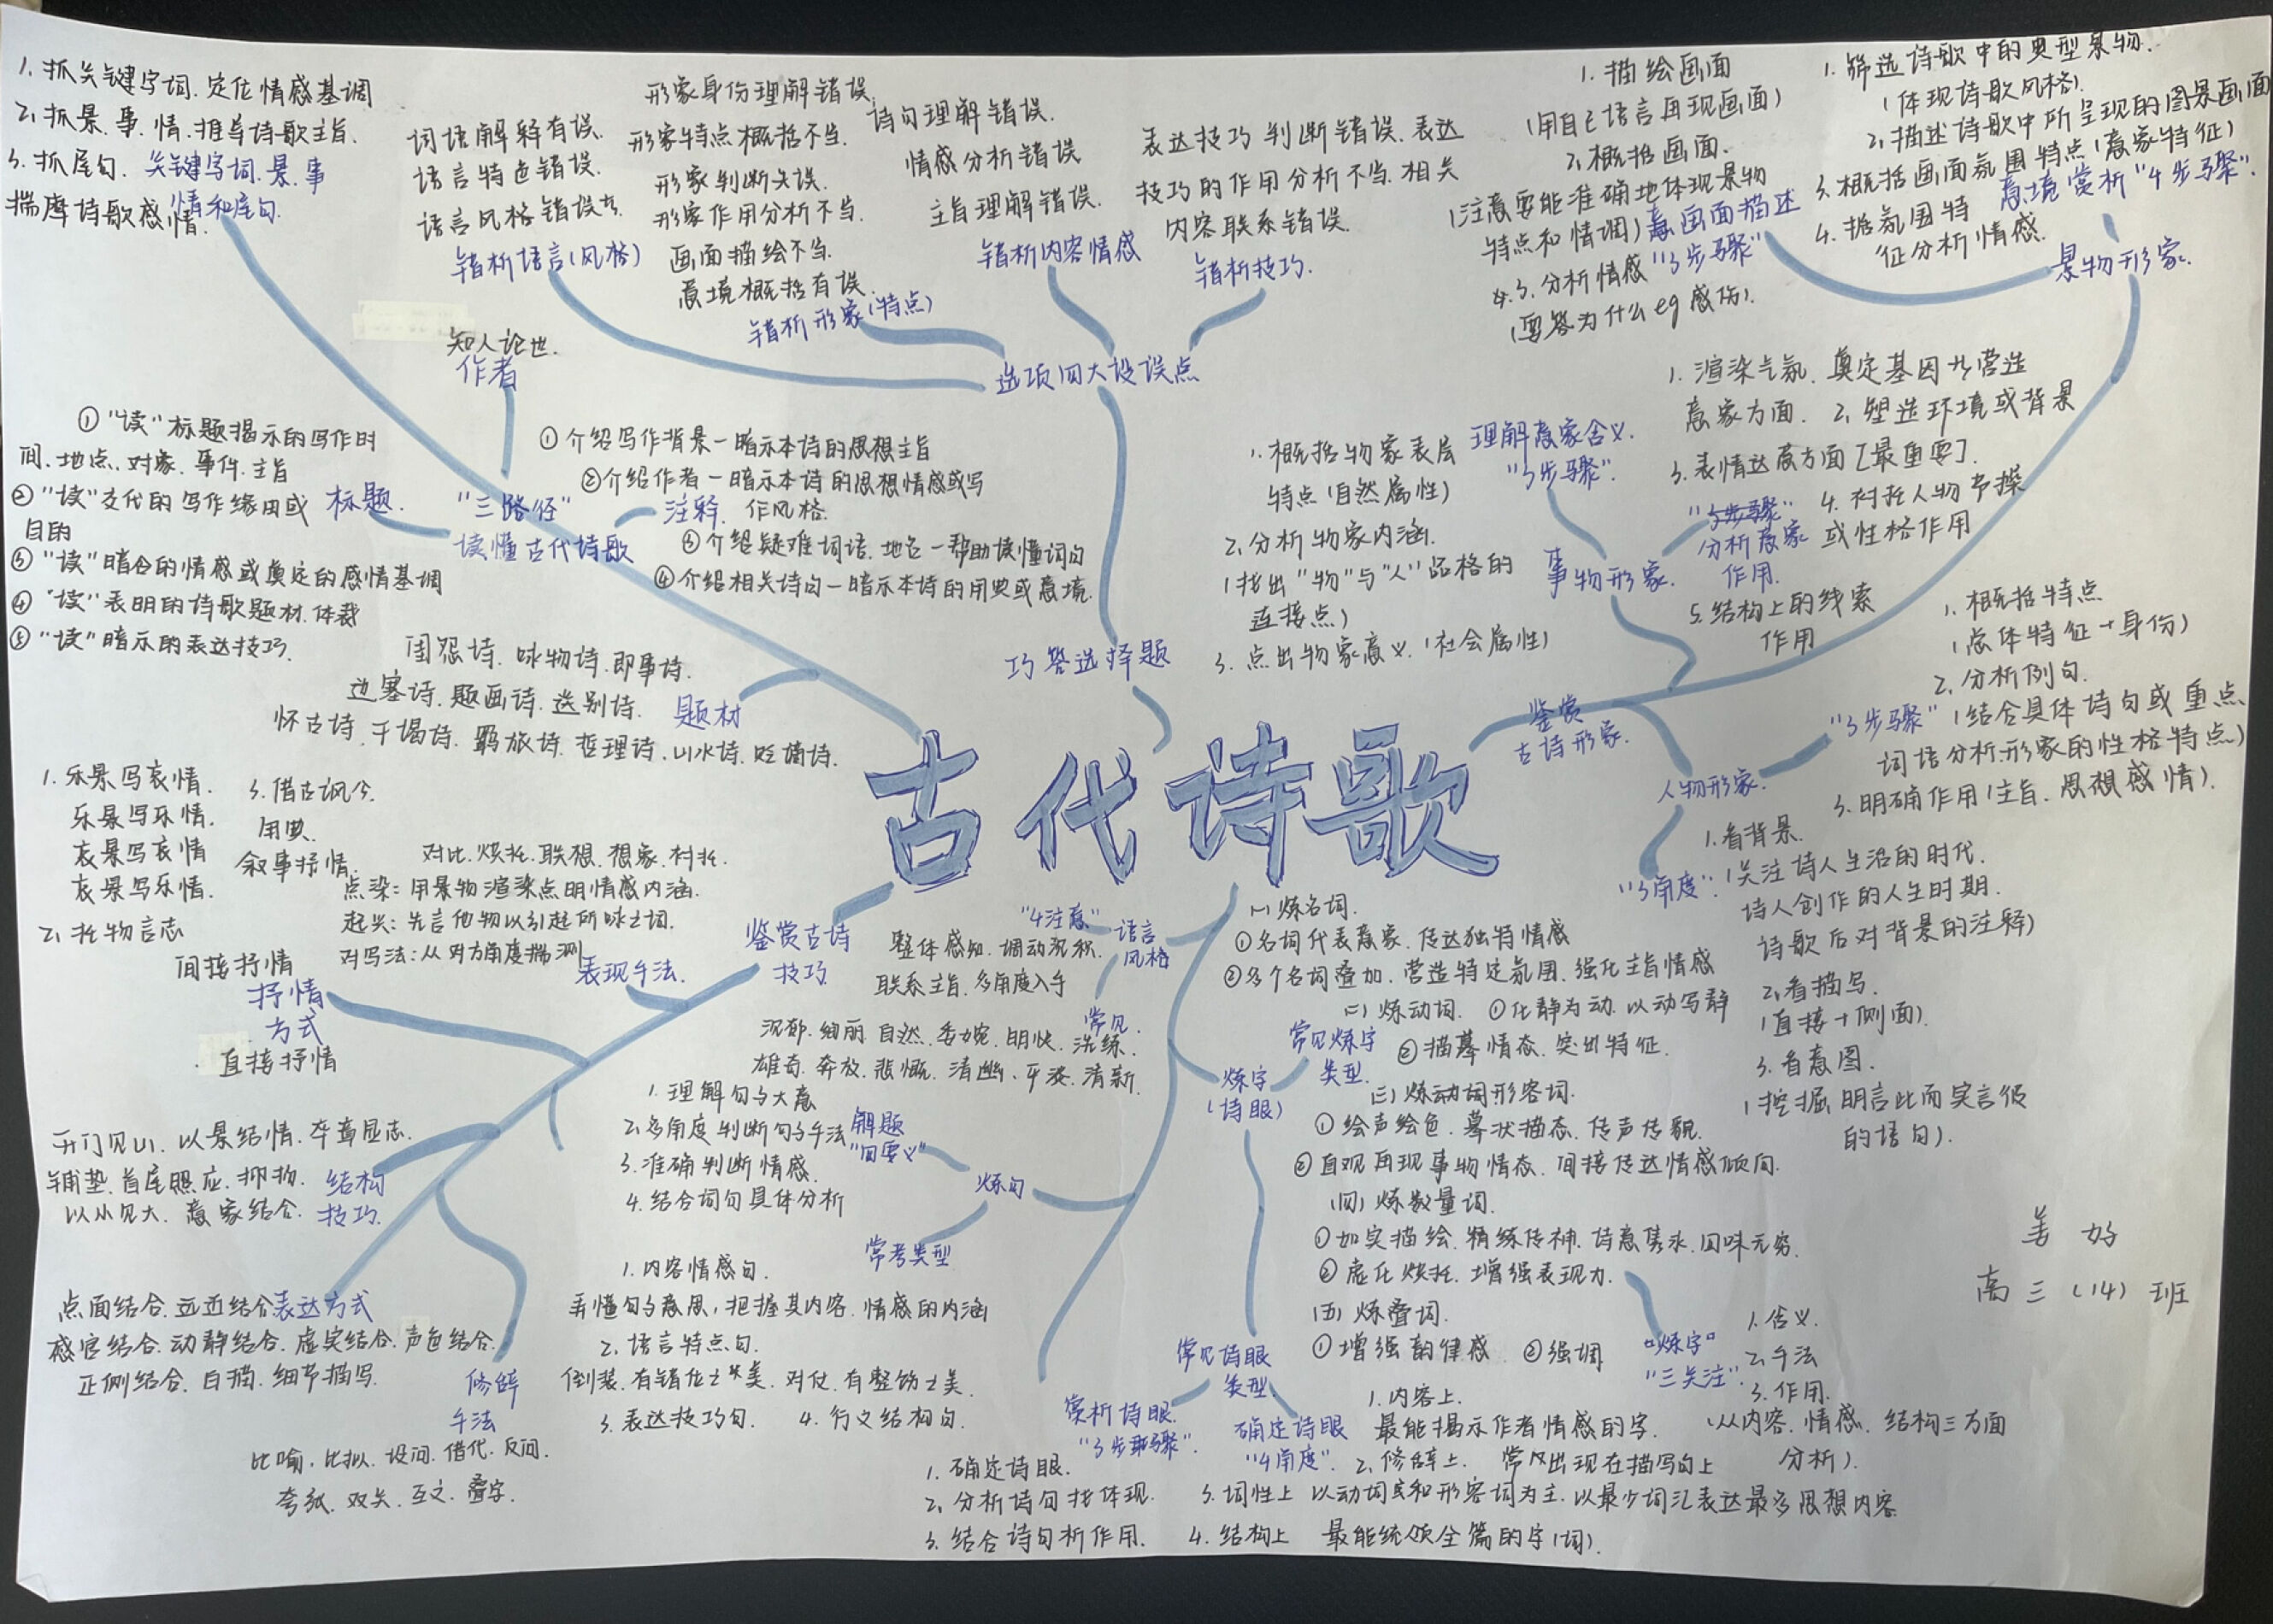 古代诗歌
1. 抓关键字词、定位情感基调
2. 抓景、事、情、推导诗歌主旨.
3. 抓尾句.
揣摩诗歌感情.
关键字词、景、事
情和尾句.
知人论世.
作者
"三路径"
读懂古代诗歌
标题.
① "读"标题揭示的写作时
间、地点、对象、事件、主旨
② "读"交代的写作缘由或
目的
③ "读"暗含的情感或奠定的感情基调
④ "读"表明的诗歌题材、体裁
⑤ "读"暗示的表达技巧.
注释.
① 介绍写作背景—暗示本诗的思想主旨
② 介绍作者—暗示本诗的思想情感或写
作风格.
③ 介绍疑难词语、地名—帮助读懂词句
④ 介绍相关诗句—暗示本诗的用典或意境.
题材
闺怨诗、咏物诗、即事诗.
边塞诗、题画诗、送别诗.
怀古诗、干谒诗、羁旅诗、哲理诗、山水诗、贬谪诗.
巧答选择题
选项四大设误点
错析语言(风格)
词语解释有误.
语言特色错误.
语言风格错误
错析形象(特点)
形象身份理解错误.
形象特点概括不当.
形象判断失误.
形象作用分析不当.
画面描绘不当.
意境概括有误.
错析内容情感
诗句理解错误.
情感分析错误
主旨理解错误.
错析技巧.
表达技巧判断错误、表达
技巧的作用分析不当、相关
内容联系错误.
鉴赏
古诗形象.
景物形象.
画面描述
"3步骤"
1. 描绘画面
(用自己语言再现画面)
2. 概括画面.
(注意要能准确地体现景物
特点和情调)
3. 分析情感
(要答为什么eg感伤).
意境赏析"4步骤".
1. 筛选诗歌中的典型景物.
(体现诗歌风格).
2. 描述诗歌中所呈现的图景画面
3. 概括画面氛围特点(意象特征)
4. 据氛围特
征分析情感.
事物形象.
理解意象含义.
"3步骤".
1. 概括物象表层
特点(自然属性)
2. 分析物象内涵.
(找出"物"与"人"品格的
连接点)
3. 点出物象意义.(社会属性)
分析意象
作用.
1. 渲染气氛、奠定基因为营造
意象方面. 2. 塑造环境或背景
3. 表情达意方面[最重要].
4. 衬托人物节操
或性格作用
5. 结构上的线索
作用
人物形象.
"3步骤"
1. 概括特点
(总体特征+身份)
2. 分析例句.
(结合具体诗句或重点
词语分析形象的性格特点)
3. 明确作用(主旨、思想感情).
"3角度".
1. 看背景.
(关注诗人生活的时代.
诗人创作的人生时期.
诗歌后对背景的注释)
2. 看描写.
(直接+侧面).
3. 看意图.
(挖掘明言此而实言彼
的语句).
鉴赏古诗
技巧.
表现手法.
对比、烘托、联想、想象、衬托.
点染:用景物渲染点明情感内涵.
起兴:先言他物以引起所咏之词.
对写法:从对方角度揣测
抒情
方式
间接抒情
1. 乐景写哀情.
乐景写乐情.
哀景写哀情
哀景写乐情.
2. 托物言志
3. 借古讽今.
用典.
叙事抒情.
直接抒情
结构
技巧.
开门见山、以景结情、卒章显志.
铺垫、首尾照应、抑扬.
以小见大、意象结合.
表达方式
点面结合、远近结合
感官结合、动静结合、虚实结合、声色结合.
正侧结合、白描、细节描写.
修辞
手法
比喻、比拟、设问、借代、反问.
夸张、双关、互文、叠字.
语言
风格
"4注意"
整体感知、调动沉积.
联系主旨、多角度入手
常见.
沉郁、绚丽、自然、委婉、明快、洗练.
雄奇、奔放、悲慨、清幽、平淡、清新.
炼句
解题
"四要义"
1. 理解句子大意
2. 多角度判断句子手法
3. 准确判断情感.
4. 结合词句具体分析
常考类型
1. 内容情感句.
弄懂句子意思,把握其内容、情感的内涵
2. 语言特点句.
倒装、有错位之美、对仗、有整饬之美.
3. 表达技巧句. 4. 行文结构句.
炼字
(诗眼)
常见炼字
类型.
(一) 炼名词.
① 名词代表意象、传达独特情感
② 多个名词叠加、营造特定氛围、强化主旨情感
(二) 炼动词. ① 化静为动、以动写静
② 描摹情态、突出特征.
(三) 炼动词形容词.
① 绘声绘色、摹状描态、传声传貌.
② 直观再现事物情态、间接传达情感倾向.
(四) 炼数量词.
① 如实描绘、精练传神、诗意隽永、回味无穷.
② 虚化烘托、增强表现力.
(五) 炼叠词.
① 增强韵律感. ② 强调
"炼字"
"三关注".
1. 含义.
2. 手法
3. 作用.
(从内容、情感、结构三方面
分析).
常见诗眼
类型.
赏析诗眼.
"3步骤".
1. 确定诗眼.
2. 分析诗句找体现.
3. 结合诗句析作用.
确定诗眼
"4角度".
1. 内容上.
最能揭示作者情感的字.
2. 修辞上. 常出现在描写句上
3. 词性上 以动词和形容词为主、以最少词汇表达最多思想内容
4. 结构上 最能统领全篇的字(词).
姜好
高三(14)班